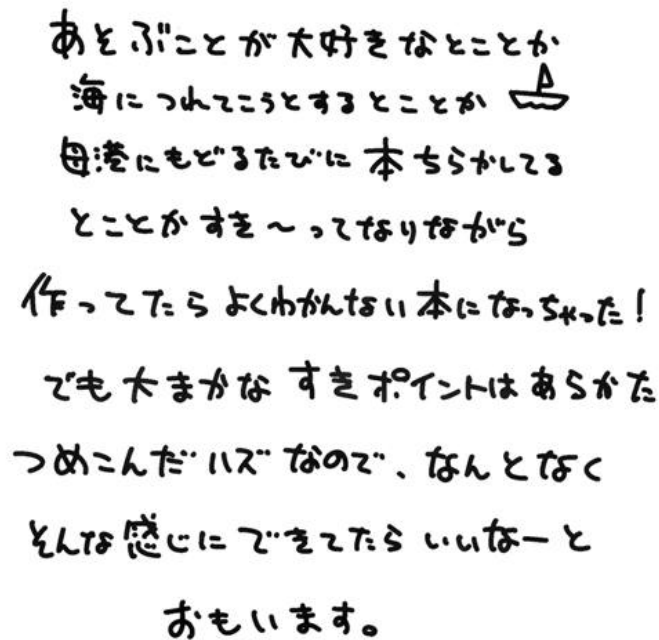 あそぶことが大好きなとことか
海につれてこうとするとことか
母港にもどるたびに本ちらかしてる
とことかすき～ってなりながら
作ってたらよくわかんない本になっちゃった！
でも大まかなすきポイントはあらかた
つめこんだハズなので、なんとなく
そんな感じにできてたらいいなーと
おもいます。